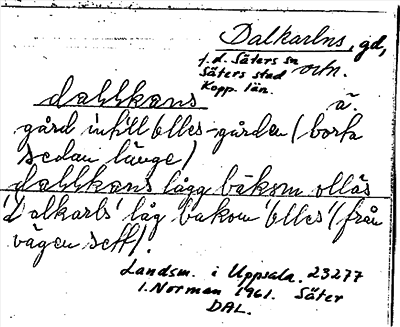 Dalkarlns, gd,
f.d. Säters sn och.
Säters stad
Kopp. län.
dallkans ä.
gård intill Olles-gården (borta
sedan länge)
dallkans lågg bakom olläs
'Dalkarls' låg bakom 'Olles' (från
vägen sett).
Landsm. i Uppsala. 23277
I. Norman 1961. Säter
DAL.